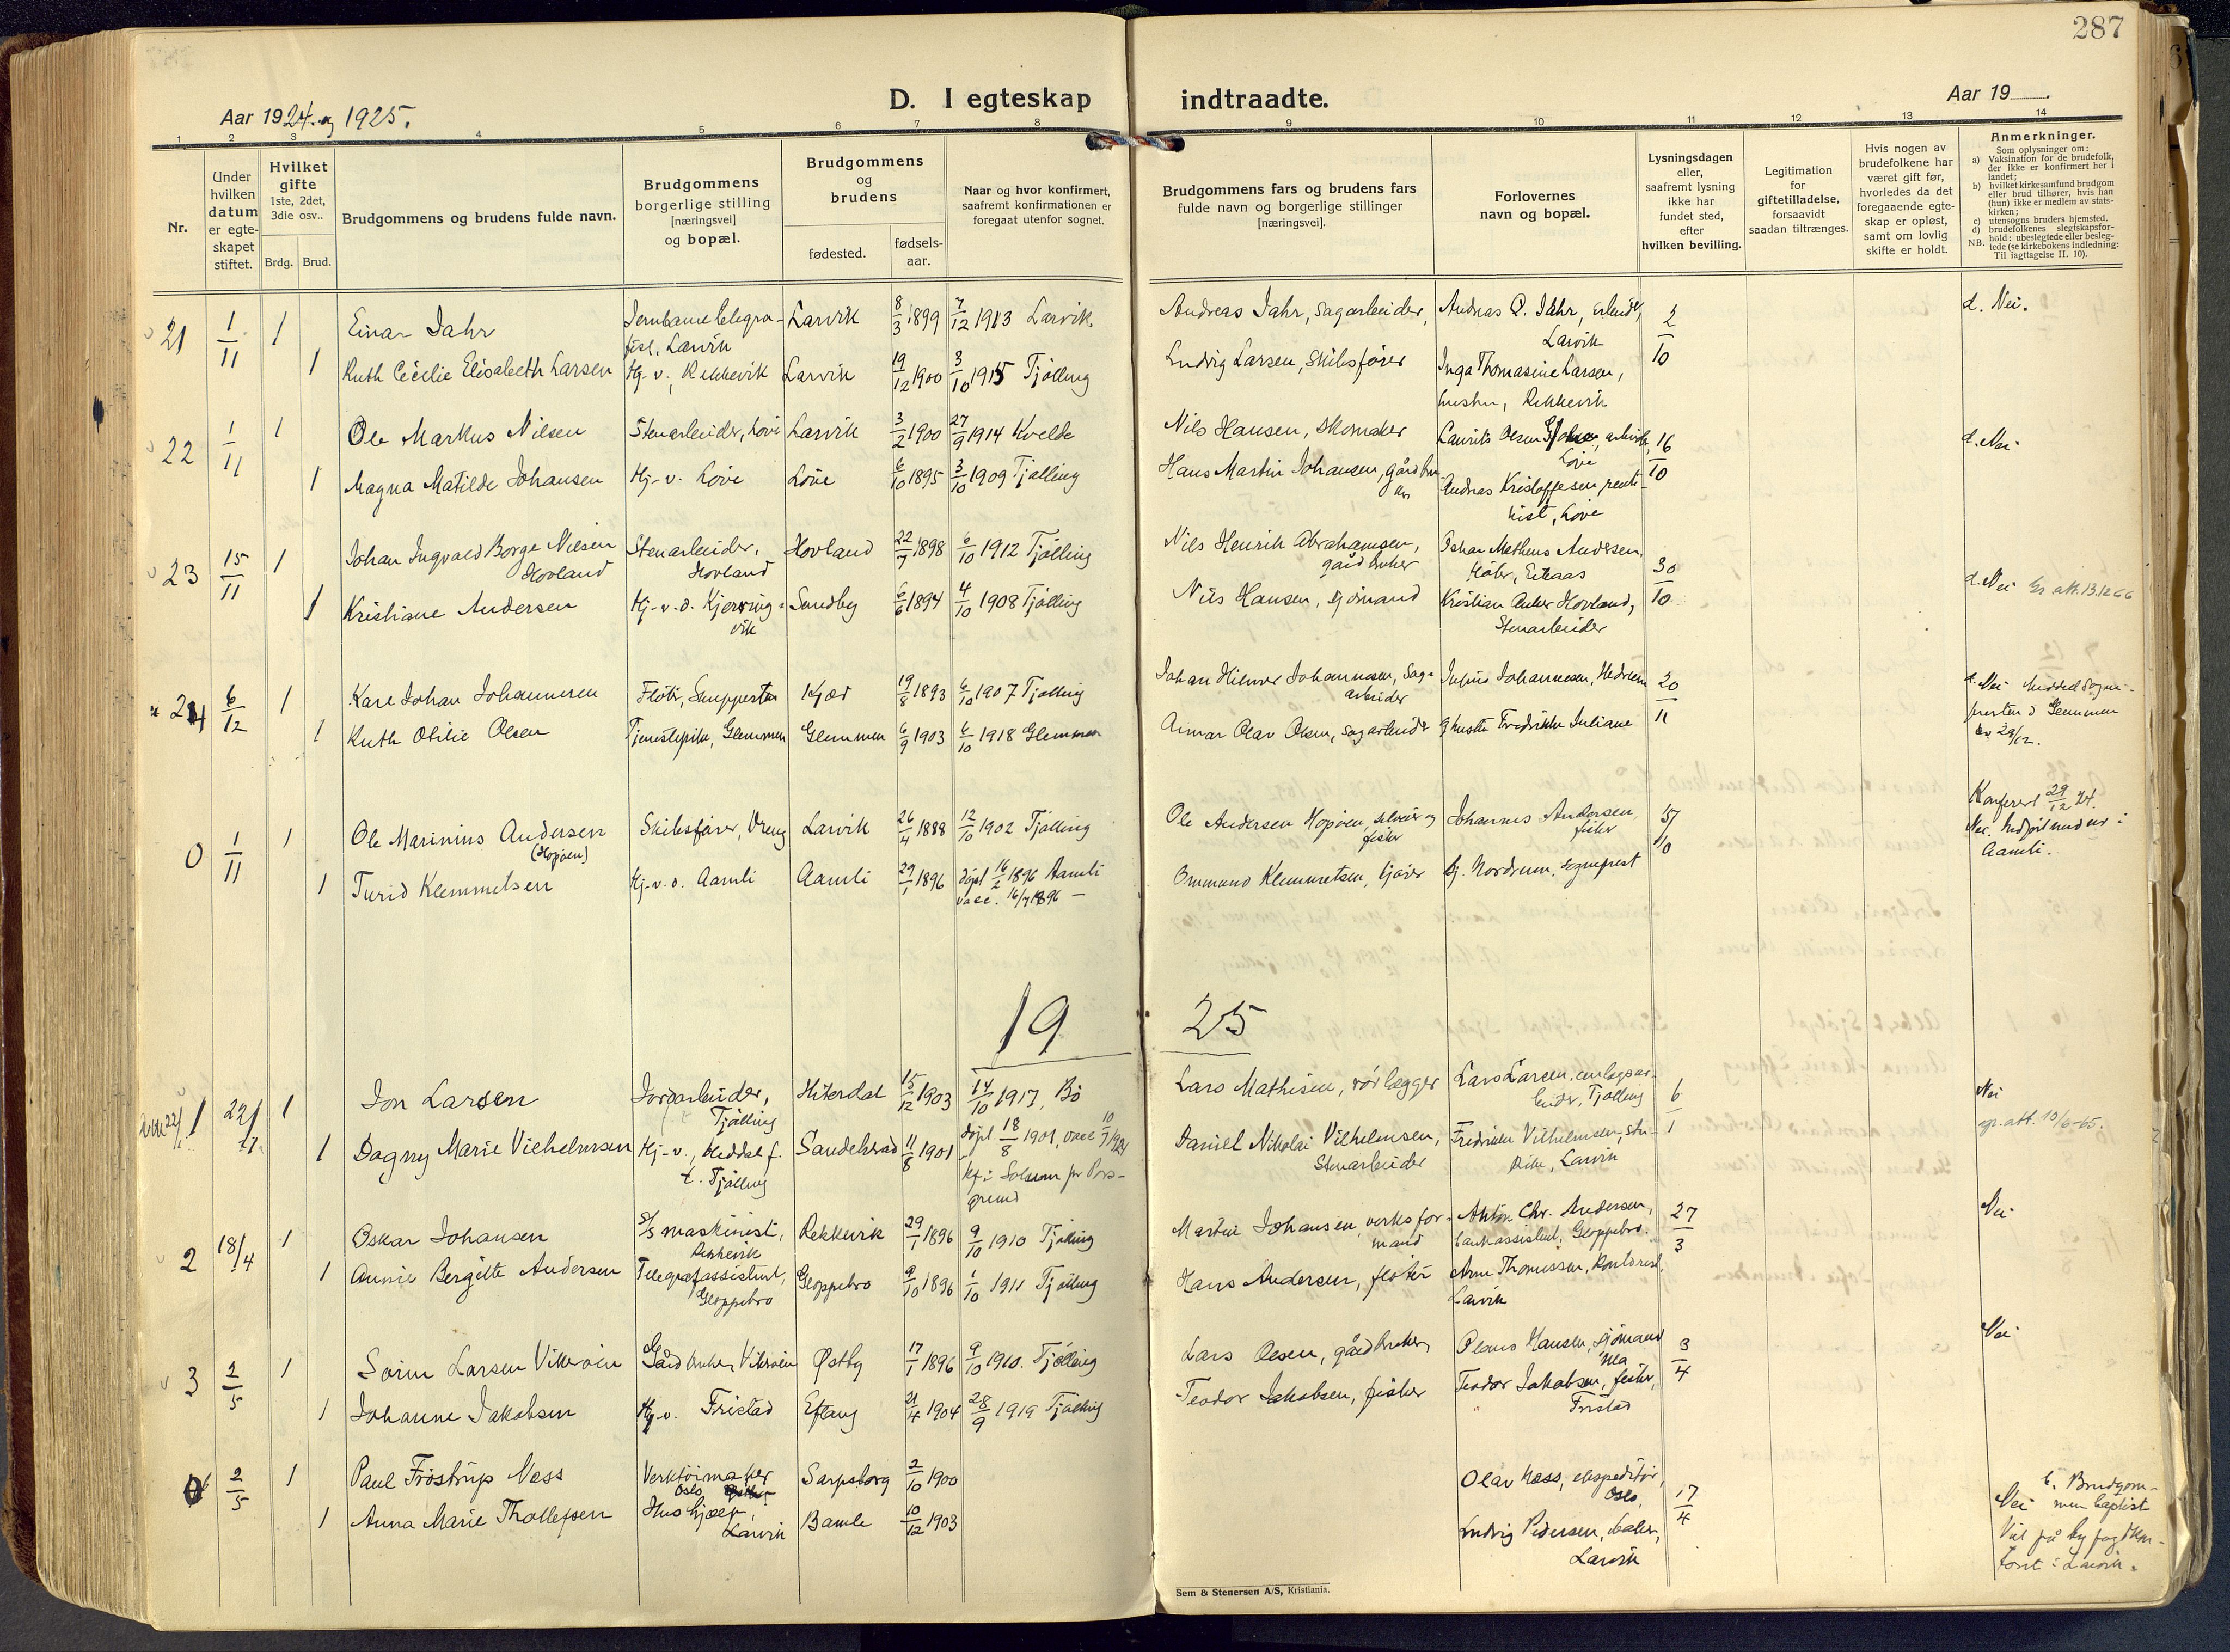 287
Aar 1924 og 1925.
D. I egteskap indtraadte.
Aar 19
1 2 3 4 5 6 7 8 9 10 11 12 13 14
Nr.
Under
hvilken
datum
er egte-
skapet
stiftet.
Hvilket
gifte
1ste, 2det,
3die osv..
Brdg. Brud.
Brudgommens og brudens fulde navn.
Brudgommens
borgerlige stilling
[næringsvei]
og bopæl.
Brudgommens
og
brudens
fødested.
fødsels-
aar.
Naar og hvor konfirmert,
saafremt konfirmationen er
foregaat utenfor sognet.
Brudgommens fars og brudens fars
fulde navn og borgerlige stillinger
[næringsvei].
Forlovernes
navn og bopæl.
Lysningsdagen
eller,
saafremt lysning
ikke har
fundet sted,
efter
hvilken bevilling.
Legitimation
for
giftetilladelse,
forsaavidt
saadan tiltrænges.
Hvis nogen av
brudefolkene har
været gift før,
hvorledes da det
foregaaende egte-
skap er opløst,
samt om lovlig
skifte er holdt.
Anmerkninger.
Som oplysninger om:
a) Vaksination for de brudefolk,
der ikke er konfirmert her i
landet;
b) hvilket kirkesamfund brudgom
eller brud tilhører, hvis han
(hun) ikke er medlem av stats-
kirken;
c) utensogns bruders hjemsted.
d) brudefolkenes slegtskapsfor-
hold: ubeslegtede eller besleg-
tede (se kirkebokens indledning:
NB. Til iagttagelse II. 10).
21 1/11 1 Einar Jahr Jernbanetelegra- Larvik 8/3 1899 7/12 1913 Larvik Andreas Jahr, Sagarbeider, Andreas O. Jahr, arbeider, 2/10 d. Nei.
fist, Larvik Larvik
1 Ruth Cecilie Elisabeth Larsen Hj. v. Rekkevik Larvik 19/12 1900 3/10 1915 Tjølling Ludvig Larsen, skibsfører Inga Thomasine Larsen,
hustru, Rekkevik
22 1/11 1 Ole Markus Nilsen Stenarbeider, Løve Larvik 3/2 1900 27/9 1914 Kvelde Nils Hansen, skomaker Laurits Olsen arbeider, 16/10 d. Nei
Løve
1 Magna Matilde Johansen Hj. v. Løve Løve 6/10 1895 3/10 1909 Tjølling Hans Martin Johansen, gårdbru-
ker Andreas Kristoffersen, rente-
nist, Løve
23 15/11 1 Johan Ingvald Borge Nilsen Stenarbeider, Hovland 22/7 1898 6/10 1912 Tjølling Nils Henrik Abrahamsen, Oskar Matheus Andersen, 30/10
Hovland Hovland gårdbruker Eikaas
1 Kristiane Andersen Hj. v. d. Kjerring- Sundby 6/6 1894 4/10 1908 Tjølling Nils Hansen, sjømand Kristian Anker Hovland, d. Nei gr. att. 13.12 66
vik Stenarbeider
24 6/12 1 Karl Johan Johannesen Fløter, Kjær 19/8 1893 6/10 1907 Tjølling Johan Hilmer Johannesen, Sag- Julius Johannesen, Hedrum 20/11 d. Nei Meddelt sogne-
arbeider presten i Glemmen
1 Ruth Otilie Olsen Tjenestepike, Glemmen Glemmen 6/9 1903 6/10 1918 Glemmen Olav Olsen, Sagarbeider Fredrikke Juliane 29/12.
0 1/11 1 Ole Marinius Andersen Skibsfører, Vreng Larvik 26/4 1888 12/10 1902 Tjølling Ole Andersen Hopøen, selveier og Johannes Andersen, Konferert 29/12 24.
(Hopøen) fisker fisker Nei.
1 Turid Klemmetsen Hj. v. d. Aamli Aamli 29/1 1896 døpt 16/2 1896 Aamli Ommund Klemmetsen, Hj. Nordrum, sogneprest Aamli.
vacc. 16/7 1896 —
19 25
1 22/1 1 Jon Larsen Jordarbeider, Hiterdal 15/12 1903 14/10 1917, Bø Lars Mathisen, rørlægger Lars Larsen, anlegsar- 6/1 Nei
Tjølling beider, Tjølling
1 Dagny Marie Vilhelmsen Hj. v., Heddal f. Sandeherad 11/8 1901 døpt 18/8 1901, vacc Daniel Nikolai Vilhelmsen, Fredrikke Vilhelmsen, gr. att. 10/6-65.
t. Tjølling kf. i Solum pr Pors- Stenarbeider Larvik
grund
2 18/4 1 Oskar Johansen S/s maskinist, Rekkevik 29/1 1896 9/10 1910 Tjølling Martin Johansen, verksfor- Anton Chr. Andersen, 27/3 Nei
Rekkevik mand bankassistent, Gloppebro.
1 Annie Bergitte Andersen Telegrafassistent, Gloppebro 9/10 1896 1/10 1911 Tjølling Hans Andersen, fløter Arne Thomassen, Kontorist,
Gloppebro Larvik
3 2/5 1 Søren Larsen Vikerøien Gårdbruker, Vikerøien Østby 17/1 1896 9/10 1910. Tjølling Lars Olsen, gårdbruker Olaus Hansen, sjømand 3/4 Nei
Ula
1 Johanne Jakobsen Hj. v. Fristad Eftang 21/4 1904 28/9 1919 Tjølling Teodor Jakobsen, fisker Teodor Jakobsen, fisker,
Fristad
0 2/5 1 Paul Frøstrup Næss Verktøimaker Sarpsborg 2/10 1900 Olav Næss, ekspeditør, 17/4 b. Brudgom-
Oslo Oslo, Nei men baptist
1 Anna Marie Thollefsen Hushjælp, Bamle 10/12 1903 Ludvig Pedersen, baker, Viet på byfogdkon-
Larvik Larvik toret i Larvik.
Sem & Stenersen A/S, Kristiania.